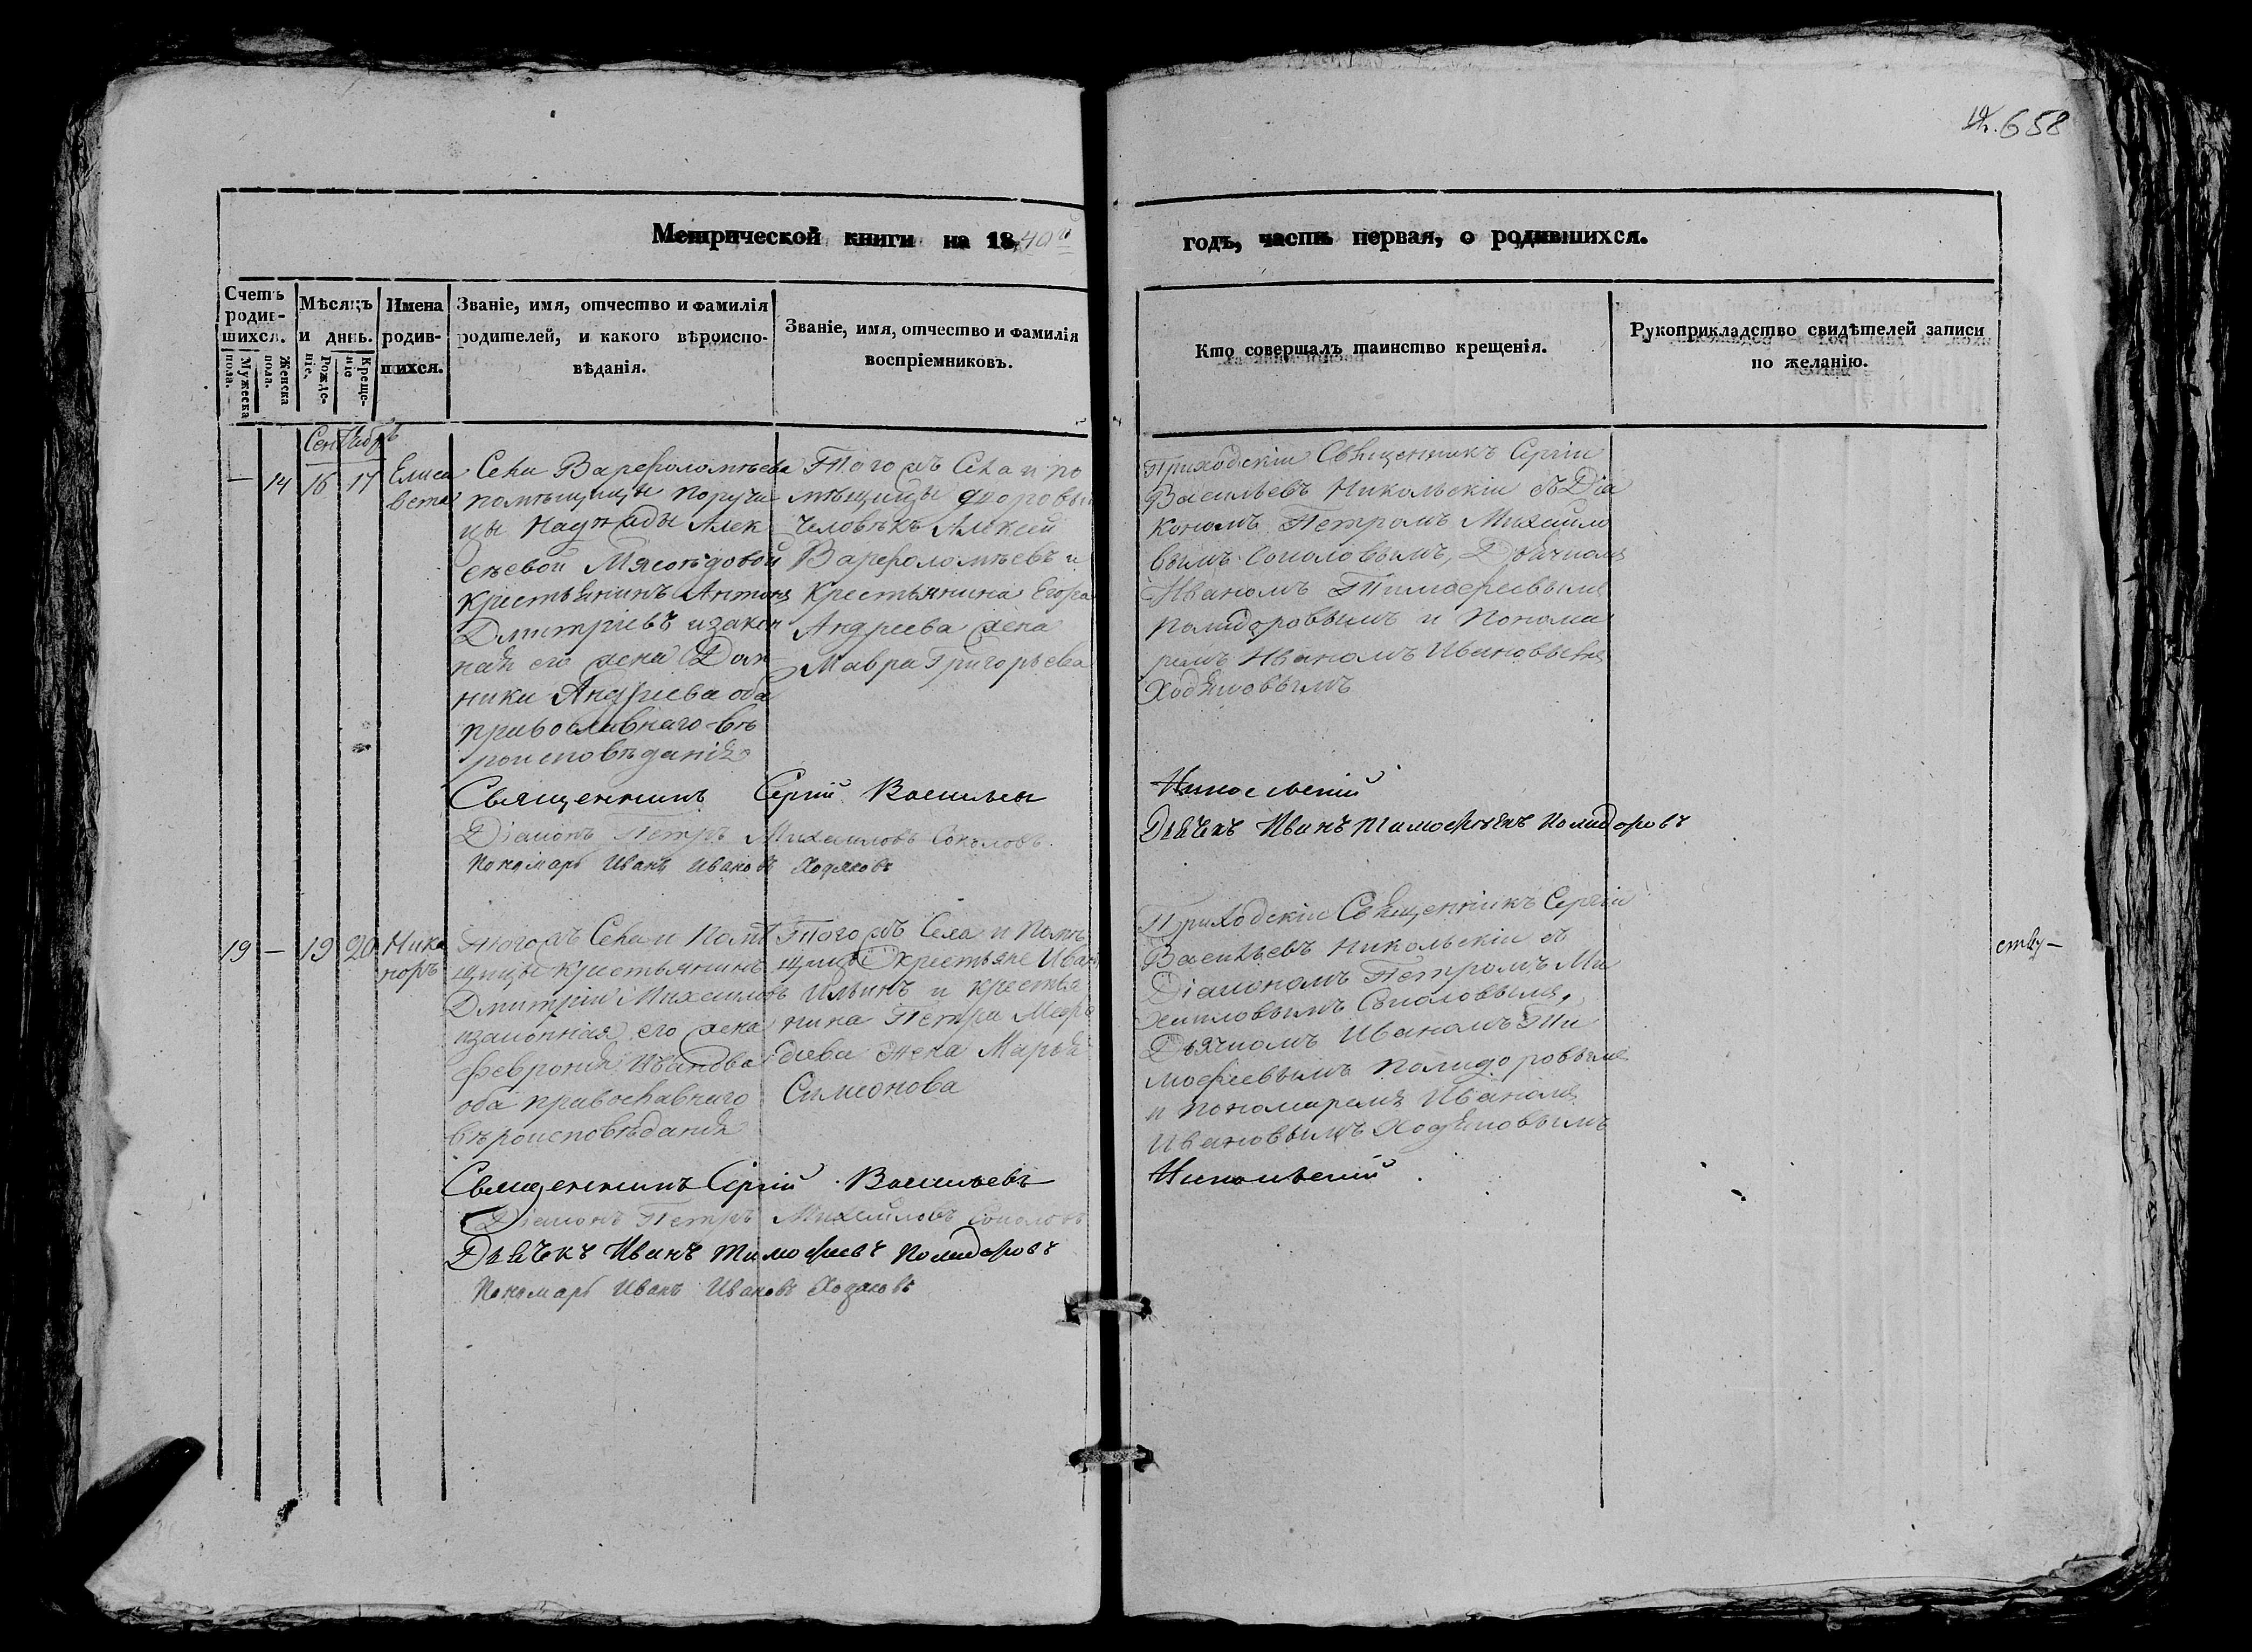 658
Метрической книги на 1840й
годъ, часть первая, о родившихся.
Счетъ родив-шихся.
Мужеска пола.
Женска пола.
Мѣсяцъ и день.
Рожде-ніе.
Креще-ніе
Имена родив-шихся.
Званіе, имя, отчество и фамилія
родителей, и какого вѣроиспо-
вѣданія.
Званіе, имя, отчество и фамилія
воспріемниковъ.
Кто совершалъ таинство крещенія.
Рукоприкладство свидѣтелей записи
по желанію.
Сентября
— 14 16 17
Елиса
вета
Села Варфоломѣева
помѣщицы поручи
цы Надежды Алек
сѣевой Мясоѣдовой
крестьянинъ Антонъ
Дмитріевъ и закон
ная его жена Дом
ники Андреева оба
православнаго вѣ
роисповѣданія
Тогожъ Села и по
мѣщицы дворовый
человѣкъ Алексей
Варфоломѣевъ и
Крестьянина Егора
Андреева жена
Мавра Григорьева
Приходскій Священникъ Сергій
Васильевъ Никольскій съ Діа
кономъ Петромъ Михайло
вымъ Соколовымъ, Дьячкомъ
Иваномъ Тимофеевымъ
Полидоровымъ и Понома
ремъ Иваномъ Ивановымъ
Ходяковымъ
Священникъ Сергій Васильевъ
Никольскій
Діаконъ Петръ Михаиловъ Соколовъ.
Дьячекъ Иванъ Тимофеевъ Полидоровъ
Пономарь Иванъ Ивановъ Ходяковъ
19 — 19 20
Ника
норъ
Тогожъ Села и Помѣ
щицы крестьянинъ
Дмитрій Михаиловъ
и законная его жена
Февронія Иванова
оба православнаго
вѣроисповѣданія
Тогожъ Села и Помѣ
щицы крестьяне Иванъ
Ильинъ и крестья
нина Петра Мефо
діева жена Марья
Симеонова
Приходскій Священникъ Сергій
Васильевъ Никольскій съ
Діакономъ Петромъ Ми
хаиловымъ Соколовымъ,
Дьячкомъ Иваномъ Ти
мофеевымъ Полидоровымъ
и Пономаремъ Иваномъ
Ивановымъ Ходяковымъ
ству—
Священникъ Сергій Васильевъ
Никольскій
Діаконъ Петръ Михайловъ Соколовъ
Дьячекъ Иванъ Тимофеевъ Полидоровъ
Пономарь Иванъ Ивановъ Ходяковъ